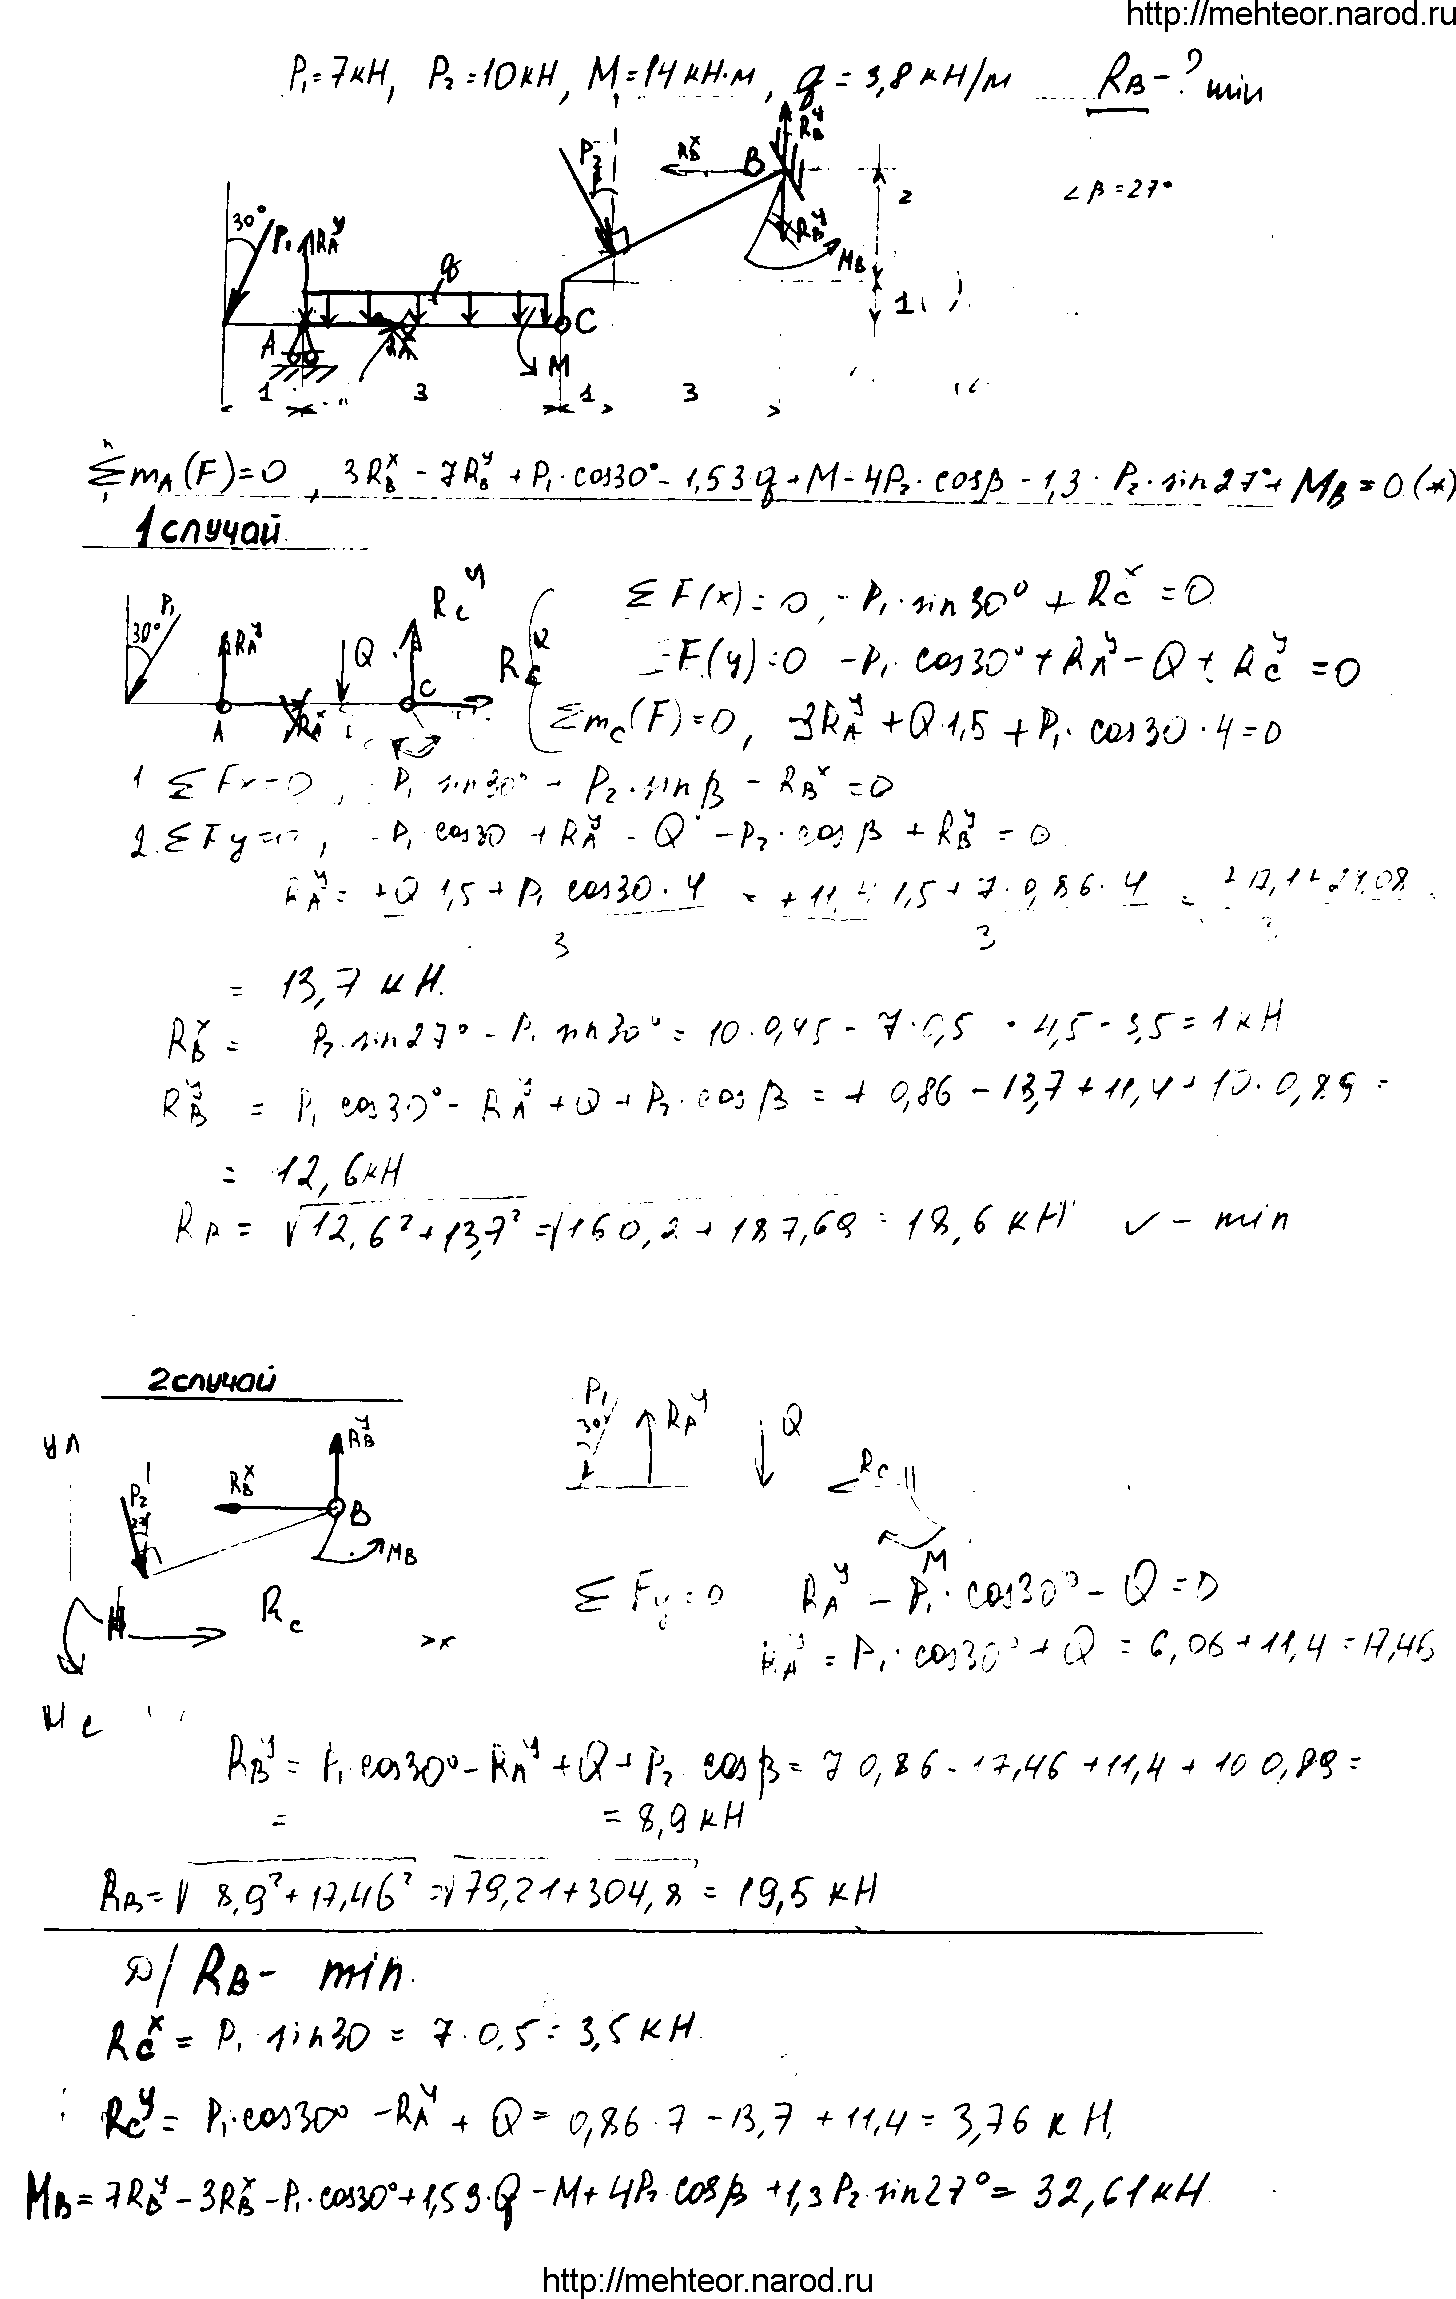 http://mehteor.narod.ru
P₁=7кН, P₂=10кН, M=14кН·м, q=3,8кН/м R_B-? min
R_B^y
P₂ R_B^x B
∠β=27°
2
30° P₁ R_A^y q R_B^y M_B
A C 1
M
1 3 1 3
Σm_A(F)=0, 3R_B^x - 7R_B^y + P₁·cos30° - 1,5·3q + M - 4P₂·cosβ - 1,3·P₂·sin27° + M_B = 0 (*)
1 случай
P₁ 30° R_A^y Q R_C^y R_C^x A C
ΣF(x)=0, -P₁·sin30° + R_C^x = 0
ΣF(y)=0 -P₁·cos30° + R_A^y - Q + R_C^y = 0
Σm_C(F)=0, -3R_A^y + Q·1,5 + P₁·cos30·4=0
1. ΣFx=0, -P₁ sin30° + P₂·sinβ - R_B^x = 0
2. ΣFy=0, -P₁·cos30 + R_A^y - Q - P₂·cosβ + R_B^y = 0
R_A^y = (+Q 1,5 + P₁ cos30·4)/3 = (+11,4·1,5+7·0,86·4)/3 = (+17,1+24,08)/3
= 13,7 кН.
R_B^x = P₂·sin27° - P₁ sin30° = 10·0,45 - 7·0,5 = 4,5-3,5=1кН
R_B^y = P₁ cos30° - R_A^y + Q + P₂·cosβ = + 0,86 - 13,7 + 11,4 + 10·0,89 =
= 12,6кН
R_B = √12,6²+13,7² = √160,2+187,69 = 18,6 кН ✓ - min
2 случай
y R_B^y P₂ R_B^x B M_B R_C x
M_C
P₁ 30° R_A^y Q R_C M
ΣFy=0 R_A^y - P₁·cos30° - Q = 0
R_A^y = P₁·cos30° + Q = 6,06+11,4=17,46
R_B^y = P₁ cos30° - R_A^y + Q + P₂ cosβ = 7 0,86 - 17,46 + 11,4 + 10 0,89 =
= = 8,9 кН
R_B = √8,9²+17,46² = √79,21+304,8 = 19,5 кН
Д/ R_B - min.
R_C^x = P₁ sin30 = 7·0,5 = 3,5 кН.
R_C^y = P₁·cos30° - R_A^y + Q = 0,86·7 - 13,7 + 11,4 = 3,76 кН.
M_B = 7R_B^y - 3R_B^x - P₁·cos30° + 1,5 9·q - M + 4P₂ cosβ + 1,3P₂·sin27° = 32,61кН
http://mehteor.narod.ru